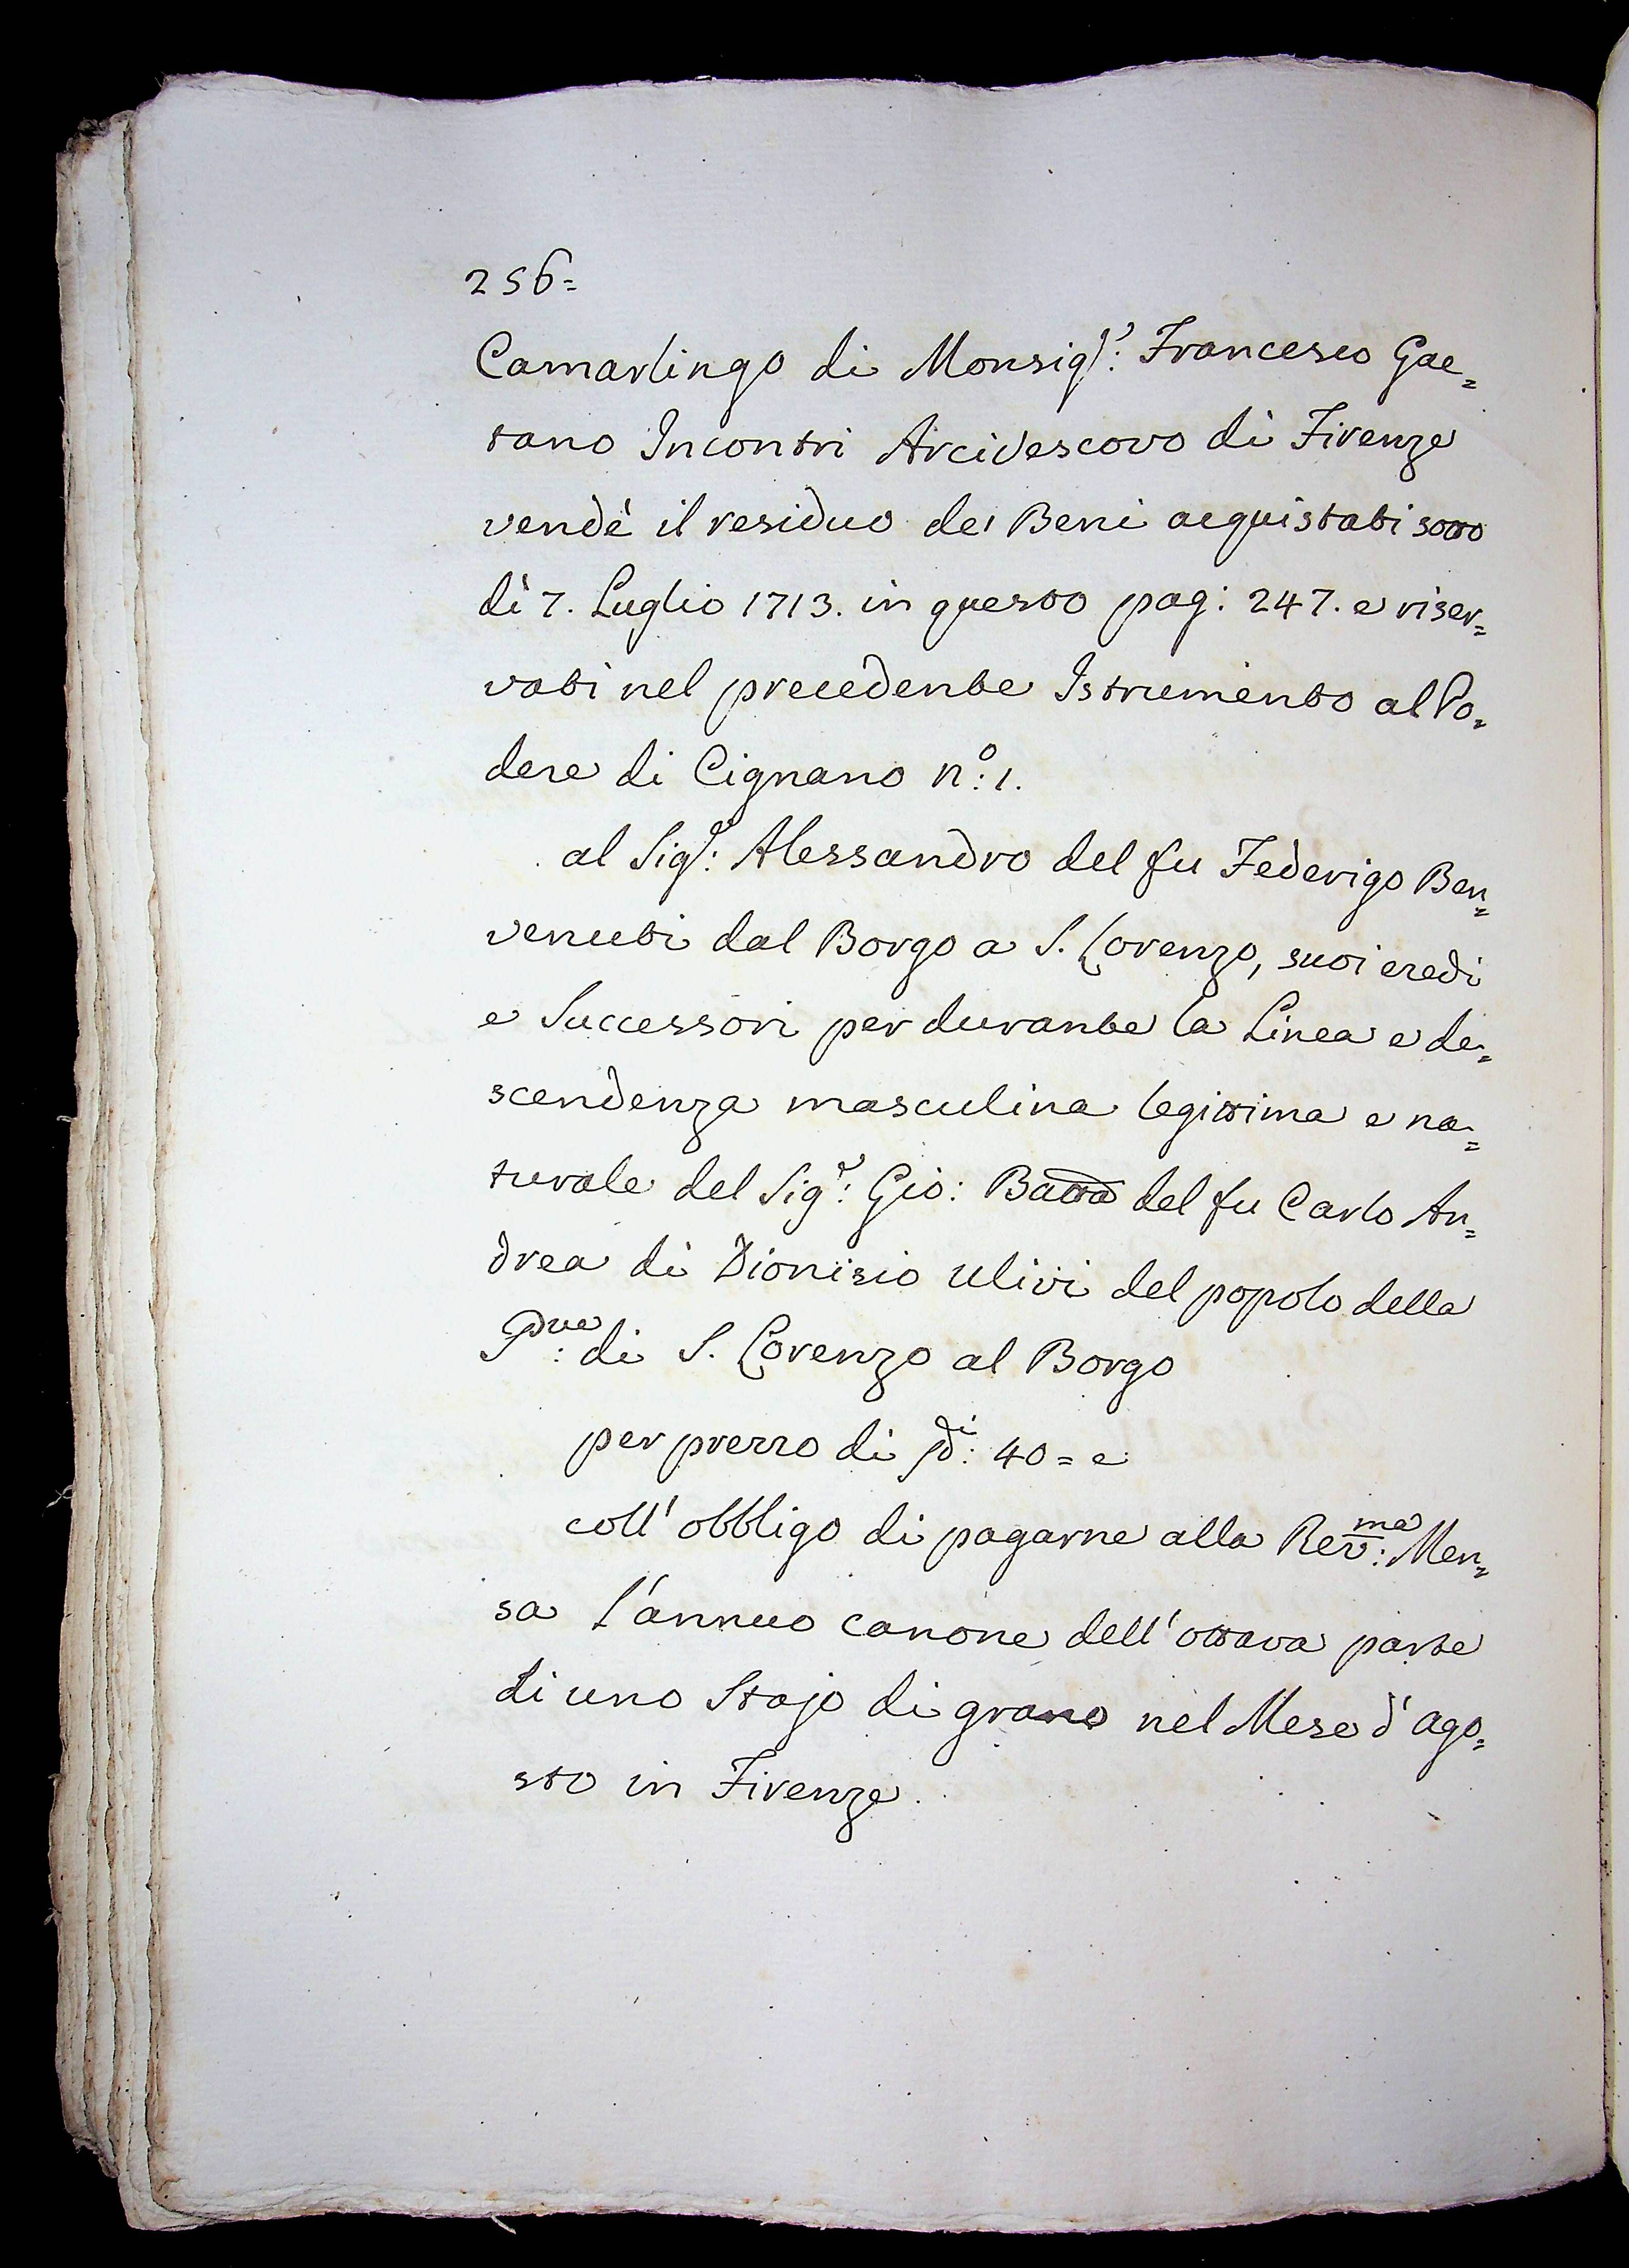 256=
Camarlingo di Monsigr: Francesco Gae=
tano Incontri Arcivescovo di Firenze
vendè il residuo dei Beni acquistati sotto
dì 7. Luglio 1713. in questo pag: 247. e riser=
vati nel precedente Istrumento al Po=
dere di Cignano no: 1.
al Sigr: Alessandro del fu Federigo Ben=
venuti dal Borgo a S. Lorenzo, suoi eredi
e Successori per durante la Linea e de=
scendenza masculina legittima e na=
turale del Sigr: Gio: Batta del fu Carlo An=
drea di Dionisio Ulivi del popolo della
di S. Lorenzo al Borgo
per prezzo di sdi: 40= e
coll'obbligo di pagarne alla Revma: Men=
sa l'annuo canone dell'ottava parte
di uno Stajo di grano nel Mese d'ago=
sto in Firenze.